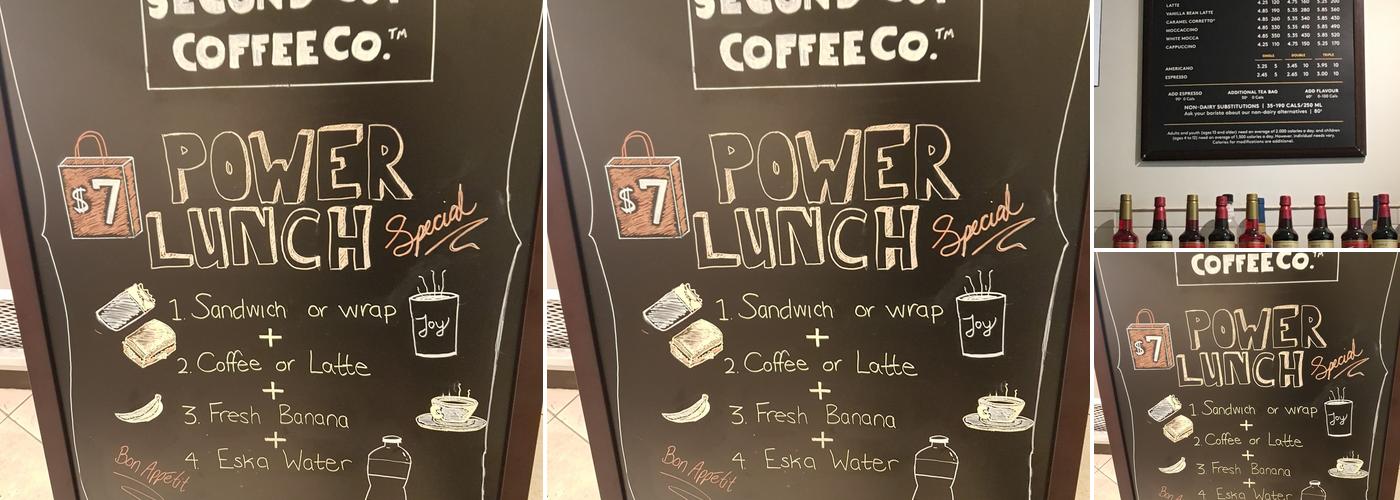 SECOND CUP
COFFEE CO.™
POWER
$7
LUNCH Special
1. Sandwich or wrap
Joy
+
2. Coffee or Latte
+
3. Fresh Banana
+
4. Eska Water
Bon Appétit
SECOND CUP
COFFEE CO.™
POWER
$7
LUNCH Special
1. Sandwich or wrap
Joy
+
2. Coffee or Latte
+
3. Fresh Banana
+
4. Eska Water
Bon Appétit
LATTE 4.25 120 4.75 160 5.25 200
VANILLA BEAN LATTE 4.85 190 5.35 280 5.85 360
CARAMEL CORRETTO 4.85 260 5.35 340 5.85 430
MOCCACCINO 4.85 330 5.35 410 5.85 490
WHITE MOCCA 4.85 350 5.35 430 5.85 520
CAPPUCCINO 4.25 110 4.75 150 5.25 170
SINGLE DOUBLE TRIPLE
AMERICANO 3.25 5 3.45 10 3.95 10
ESPRESSO 2.45 5 2.65 10 3.00 10
ADD ESPRESSO ADDITIONAL TEA BAG ADD FLAVOUR
90¢ 0 Cals 50¢ 0 Cals 60¢ 0-100 Cals
NON-DAIRY SUBSTITUTIONS | 35-190 CALS/250 ML
Ask your barista about our non-dairy alternatives | 80¢
Adults and youth (ages 13 and older) need an average of 2,000 calories a day, and children
(ages 4 to 12) need an average of 1,500 calories a day. However, individual needs vary.
Calories for modifications are additional.
COFFEE CO.™
POWER
$7
LUNCH Special
1. Sandwich or wrap
Joy
+
2. Coffee or Latte
+
3. Fresh Banana
+
4. Eska Water